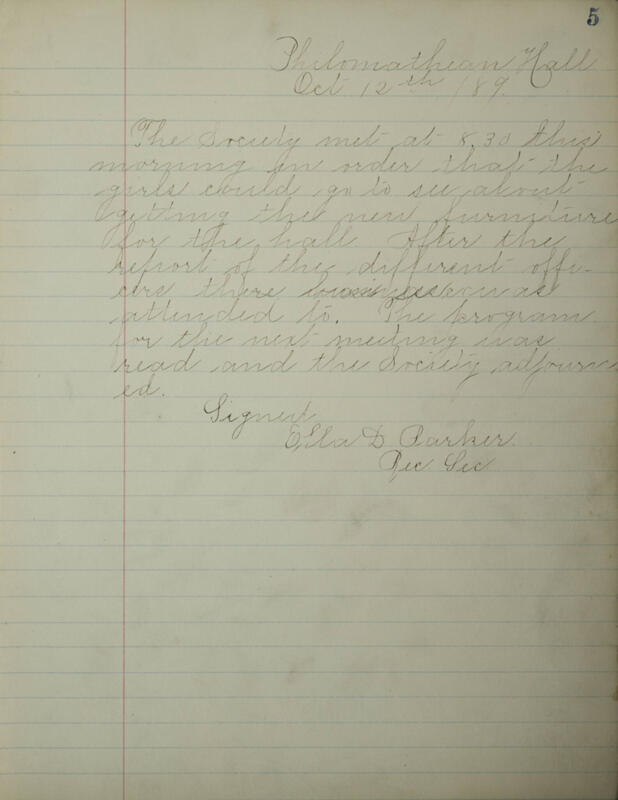 5
Philomathean Hall
Oct 12th /89
The Society met at 8.30 this
morning in order that the
girls could go to see about
getting the new furniture
for the hall. After the
report of the different offi-
cers there was
attended to. The program
for the next meeting was
read and the Society adjourn-
ed.
Signed
Ella D Parker
Rec Sec